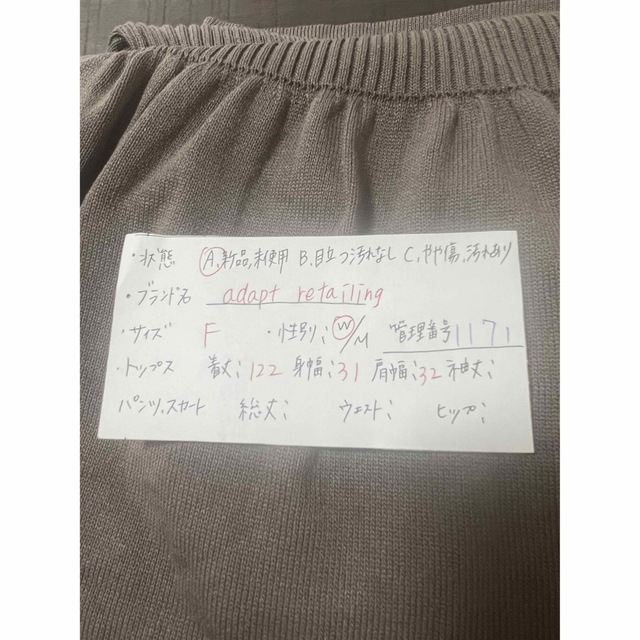 ・状態 A,新品,未使用 B,目立つ汚れなし C,やや傷,汚れあり
・ブランド名 adapt retailing
・サイズ F ・性別; W/M 管理番号1171
・トップス 着丈;122 身幅;31 肩幅;32 袖丈;
パンツ,スカート 総丈; ウエスト; ヒップ;